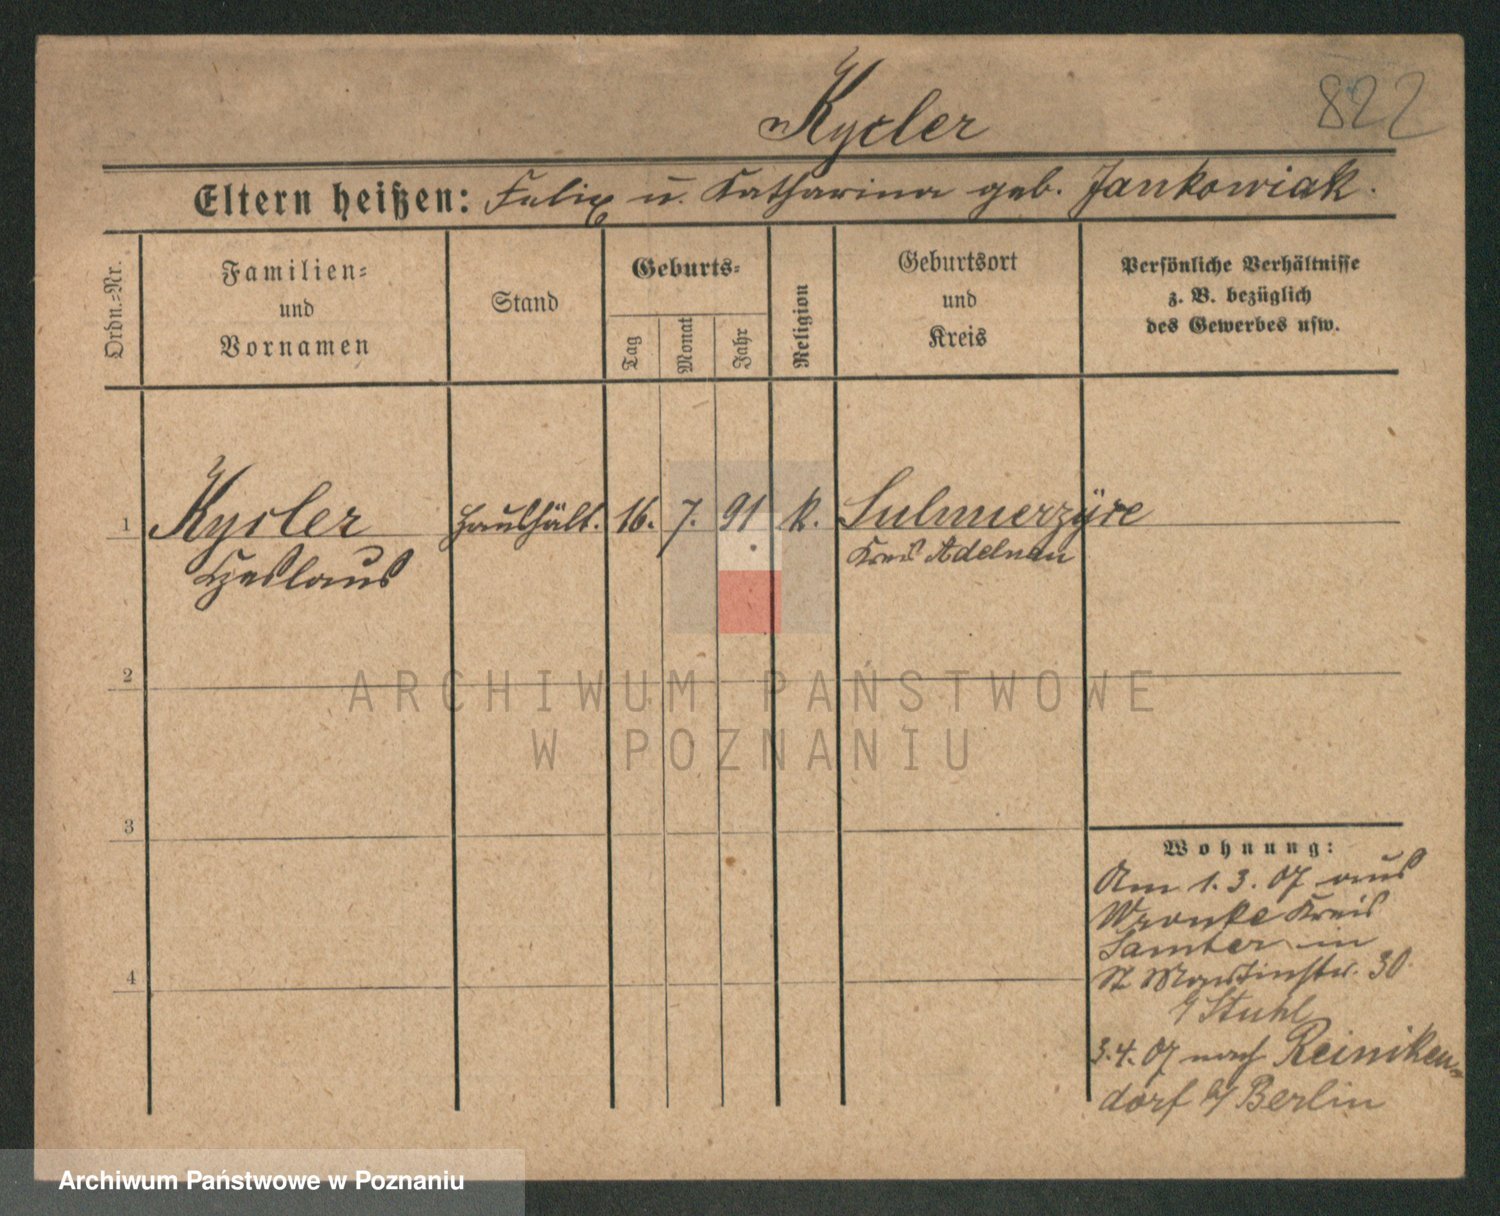 822
Kycler
Eltern heißen: Felix u. Katharina geb. Jankowiak.
Ordn.-Nr.
Familien-
und
Vornamen
Stand
Geburts-
Tag
Monat
Jahr
Religion
Geburtsort
und
Kreis
Persönliche Verhältnisse
z. B. bezüglich
des Gewerbes usw.
1 Kycler Haushält. 16. 7. 91 k. Sulmierzyce
Czeslaus Kreis Adelnau
2
ARCHIWUM PAŃSTWOWE
W POZNANIU
3
Wohnung:
Am 1. 3. 07 aus
Wronke Kreis
Samter in
St Martinstr. 30
b/ Stuhl
4
3. 4. 07 nach Reiniken-
dorf b/ Berlin
Archiwum Państwowe w Poznaniu